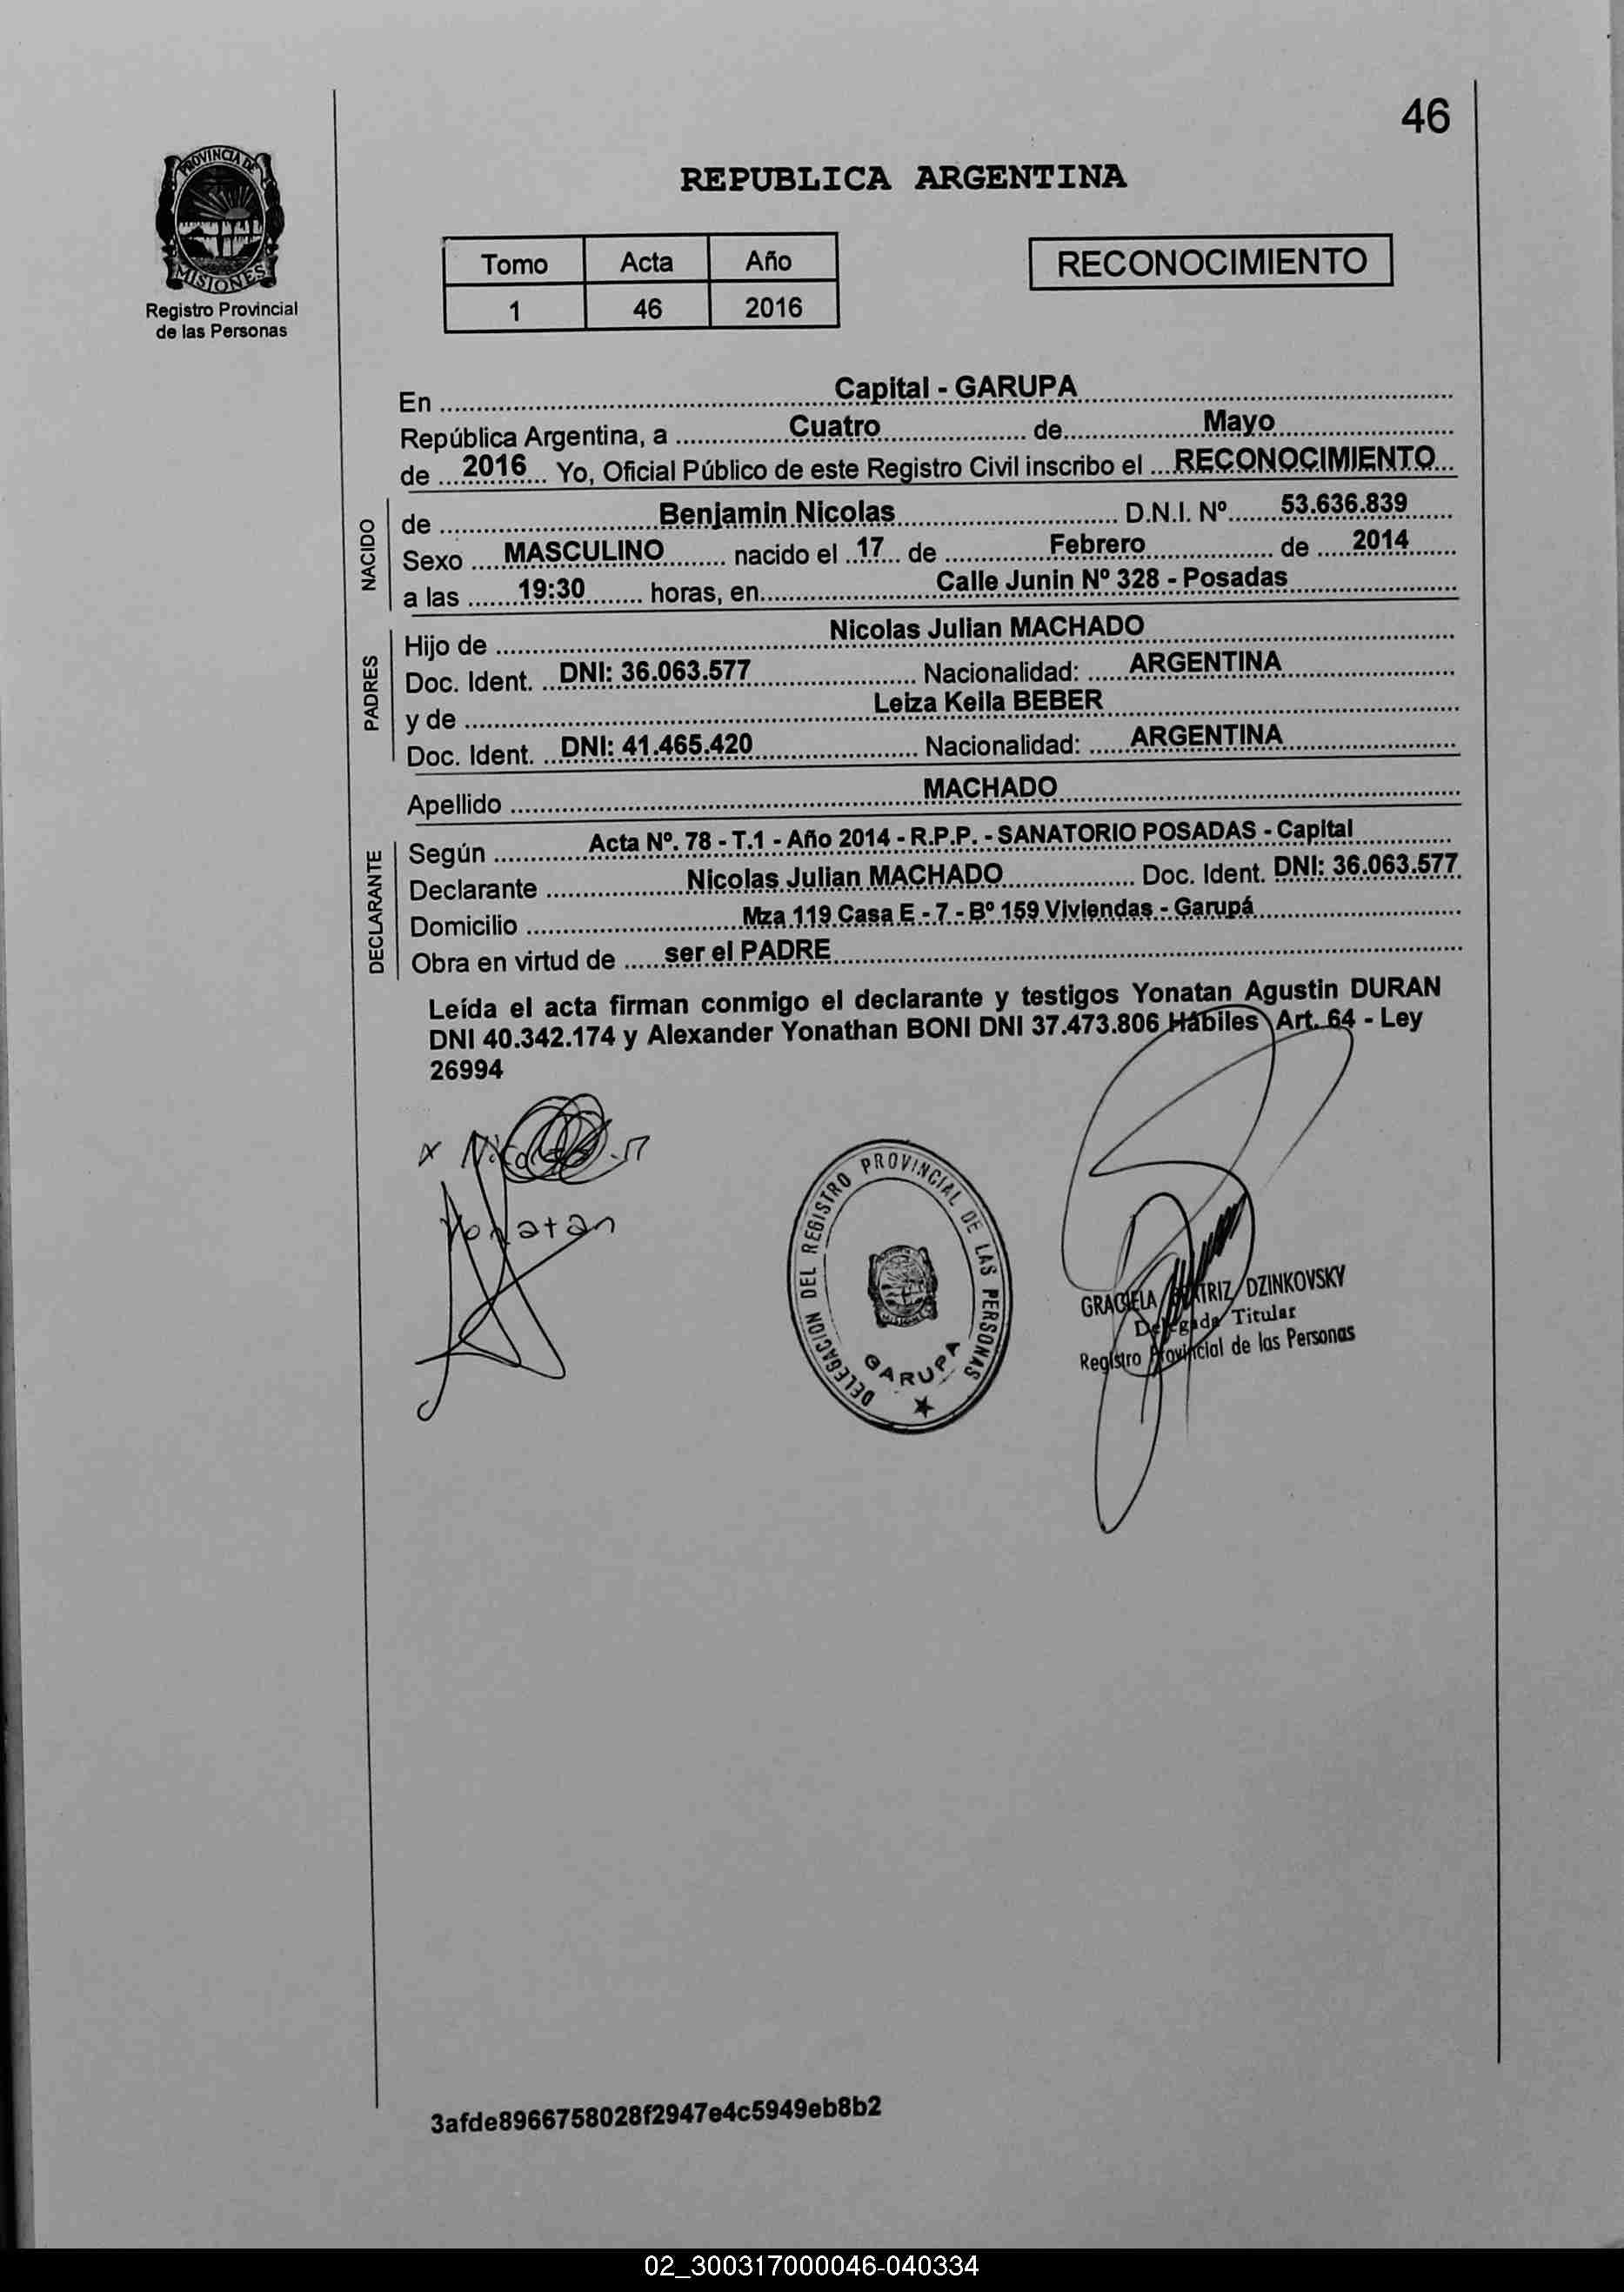 46
PROVINCIA DE
MISIONES
Registro Provincial
de las Personas
REPUBLICA ARGENTINA
Tomo Acta Año
1 46 2016
RECONOCIMIENTO
En Capital - GARUPA
República Argentina, a Cuatro de Mayo
de 2016 Yo, Oficial Público de este Registro Civil inscribo el RECONOCIMIENTO
NACIDO
de Benjamin Nicolas D.N.I. Nº 53.636.839
Sexo MASCULINO nacido el 17 de Febrero de 2014
a las 19:30 horas, en Calle Junin Nº 328 - Posadas
PADRES
Hijo de Nicolas Julian MACHADO
Doc. Ident. DNI: 36.063.577 Nacionalidad: ARGENTINA
y de Leiza Keila BEBER
Doc. Ident. DNI: 41.465.420 Nacionalidad: ARGENTINA
Apellido MACHADO
DECLARANTE
Según Acta Nº. 78 - T.1 - Año 2014 - R.P.P. - SANATORIO POSADAS - Capital
Declarante Nicolas Julian MACHADO Doc. Ident. DNI: 36.063.577
Domicilio Mza 119 Casa E - 7 - Bº 159 Viviendas - Garupá
Obra en virtud de ser el PADRE
Leída el acta firman conmigo el declarante y testigos Yonatan Agustin DURAN
DNI 40.342.174 y Alexander Yonathan BONI DNI 37.473.806 Hábiles Art. 64 - Ley
26994
Yonatan
DELEGACION DEL REGISTRO PROVINCIAL DE LAS PERSONAS
MISIONES
GARUPA
GRACIELA BEATRIZ DZINKOVSKY
Delegada Titular
Registro Provincial de las Personas
3afde8966758028f2947e4c5949eb8b2
02_300317000046-040334